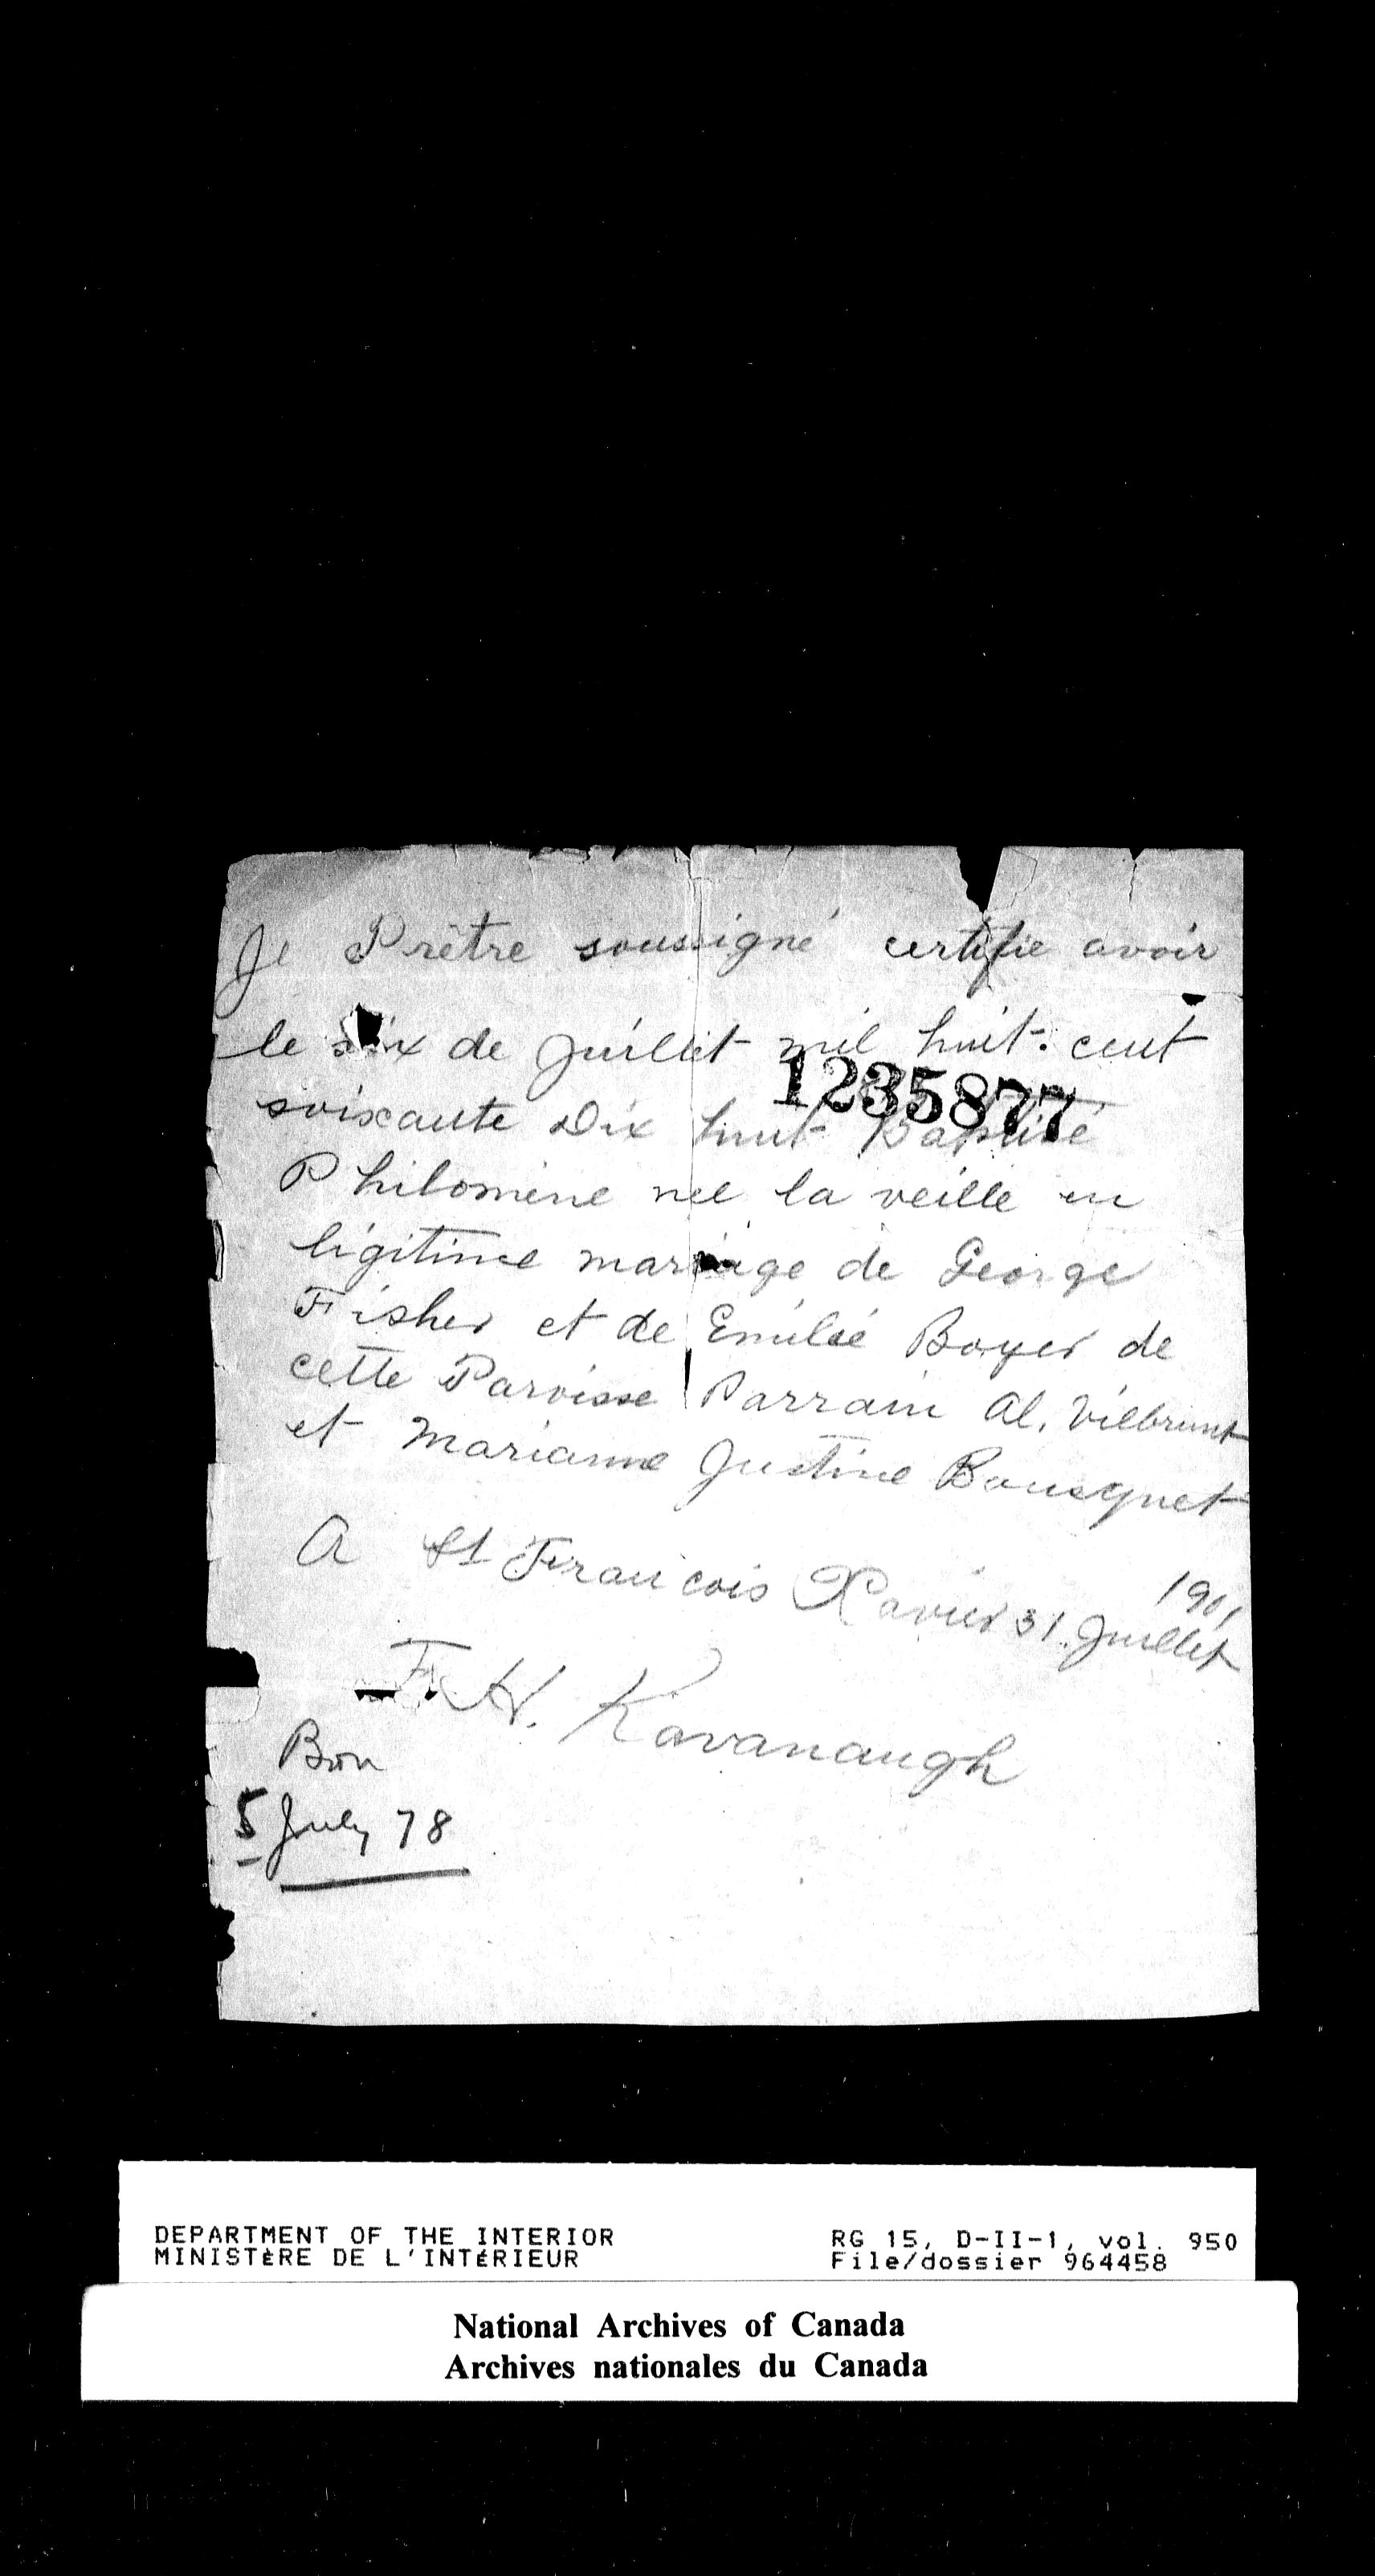 Je Prêtre soussigné certifie avoir
le six de Juillet mil huit. cent
1235877
soixante Dix huit Baptisé
Philomène neé la veille en
légitime mariage de George
Fisher et de Emilie Boyer de
cette Paroisse Parrain Al. Vilbrunt
et Marianne Justine Bousquet
A St Francois Xavier 31 Juillet
1901
F. H. Kavanaugh
Born
5 July 78
DEPARTMENT OF THE INTERIOR
MINISTÈRE DE L'INTÉRIEUR
RG 15, D-II-1, vol. 950
File/dossier 964458
National Archives of Canada
Archives nationales du Canada